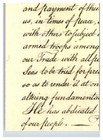 and payment of their
us, in times of peace,
with others to subject
armed troops among
our Trade with all p
Seas to be tried for pre
so as to render it at on
altering fundamenta
He has abdicated
of our people.